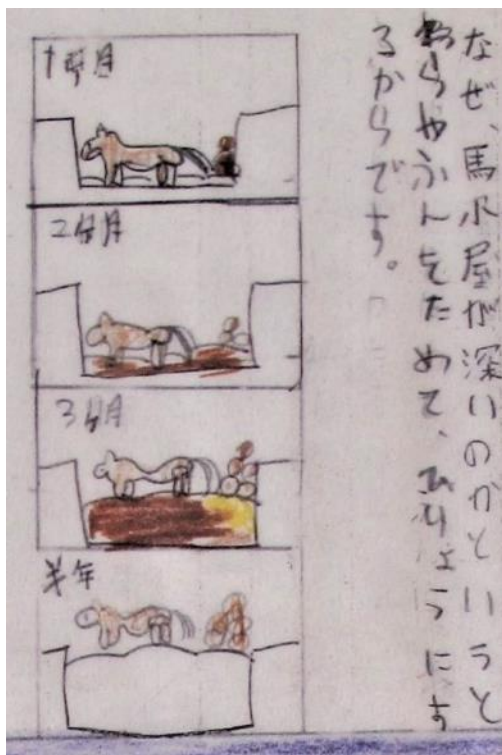 なぜ、馬小屋が深いのかというと
わらやふんをためて、ひりょうにす
るからです。
1ヶ月
2ヶ月
3ヶ月
半年